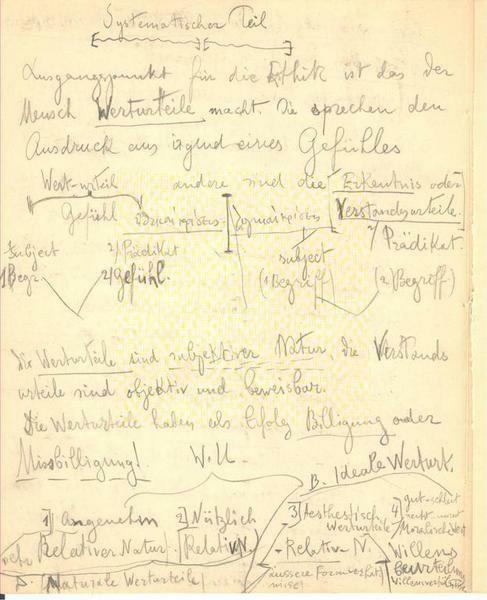 Systematischer Teil
Ausgangspunkt für die Ethik ist das der
Mensch Werturteile macht. Die sprechen den
Ausdruck aus irgend eines Gefühles
Wert-urteil andere sind die Erkentnis oder
Gefühl Verstandsurteile.
Subject 2) Prädikat subject 2) Prädikat.
1) Begr. 2) Gefühl. (1 Begriff) (2 Begriff)
Die Werturteile sind subjektiver Natur, die Verstands
urteile sind objektiv und beweisbar.
Die Werturteile haben als Erfolg Billigung oder
Missbilligung! W.U. B. Ideale Werturt.
1) Angenehm 2) Nützlich 3) Aesthestisch Werturteile 4) gut-schlecht
Moralische
Relativer Natur. (Relativ N.) - Relativ N. Willens
beurteilung
A. Naturale Werturteile äussere Form